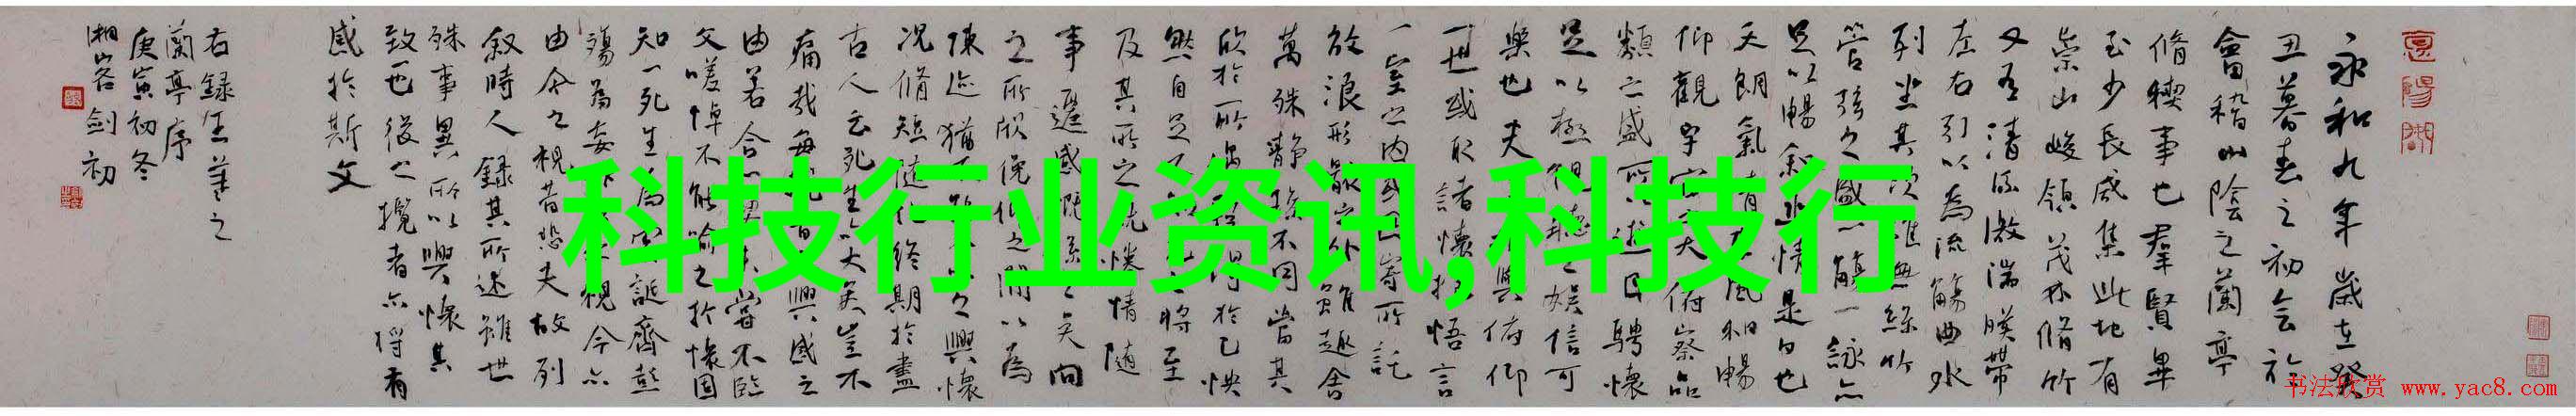 永和九年歲在癸
丑暮春之初会於
會稽山陰之蘭亭
脩禊事也群賢畢
至少長咸集此地有
崇山峻領茂林脩竹
又有清流激湍暎帶
左右引以為流觴曲水
列坐其次雖無絲竹
管弦之盛一觴一詠亦
足以暢叙幽情是日也
天朗氣清風和暢
仰觀宇宙大俯察品
類之盛所以遊目騁懷
足以極視聽之娛信可
樂也夫與俯仰
一世或取諸懷抱悟言
一室之内或因寄所託
放浪形骸之外雖趣舍
萬殊靜躁不同當其
欣於所遇得於己怏
然自足不將至
及其所之既惓情随
事遷感慨係之矣向
之所欣俛仰之間以為
陳迹猶不之興懷
况脩短随化終期於盡
古人云死生亦大矣豈不
痛哉每昔興感之
由若合一契未嘗不臨
文嗟悼不能喻之於懷固
知一死生為虚誕齊彭
殤為妄視今亦
由今之視昔悲夫故列
叙時人錄其所述雖世
殊事異所以興懷其
致一也後之攬者亦將有
感於斯文
右録王羲之
蘭亭序
庚寅初冬
湘客劍初
科技行业资讯,科技行
书法欣赏 www.yac8.com